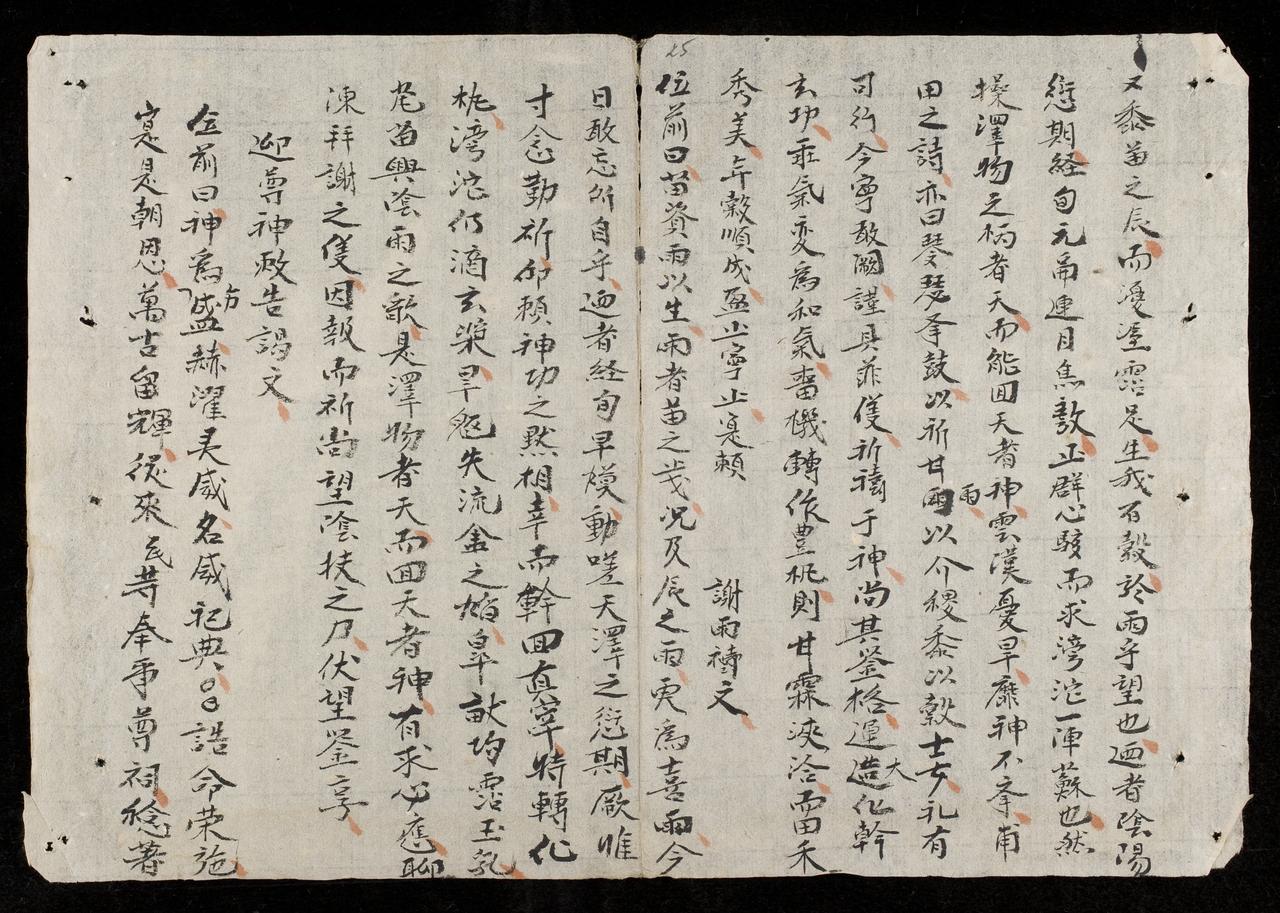 25
又黍苗之辰而漫湮霑足生我百穀於雨乎望也迺者陰陽
愆期経旬亢甭連月焦熬正群心駭而求滂沱一陣蘇也然
操澤物之柄者天而能回天者神雲漢憂旱靡神不㪯甫
田之詩亦曰琴瑟㪯鼓以祈甘雨以介稷黍以穀士女礼有
可行今寧敢闕謹具菲儀祈禱于神尚其鉴格運大造化幹
玄功乖氣変為和氣嗇機轉作豊机則甘霖浹洽而田禾
秀美年穀順成盈止寧止寔頼
謝雨禱文
位前曰苗資雨以生雨者苗之 况及辰之雨更為喜雨今
日敢忘所自乎迺者経旬旱熯動嗟天澤之愆期厥惟
寸念勤祈仰頼神功之黙相幸而幹回真宰特轉化
机滂沱仍滴玄㮣旱魃失流金之焰皐畝均霑玉乳
芃苗興陰雨之歌是澤物者天而回天者神有求必應聊
陳拜謝之儀因報而祈尚望陰扶之力伏望鉴享
迎尊神敕告謁文
位前曰神為方盛赫濯灵威名咸祀典 誥命荣施
寔是朝恩萬古留輝從來民等奉事尊祠稔著